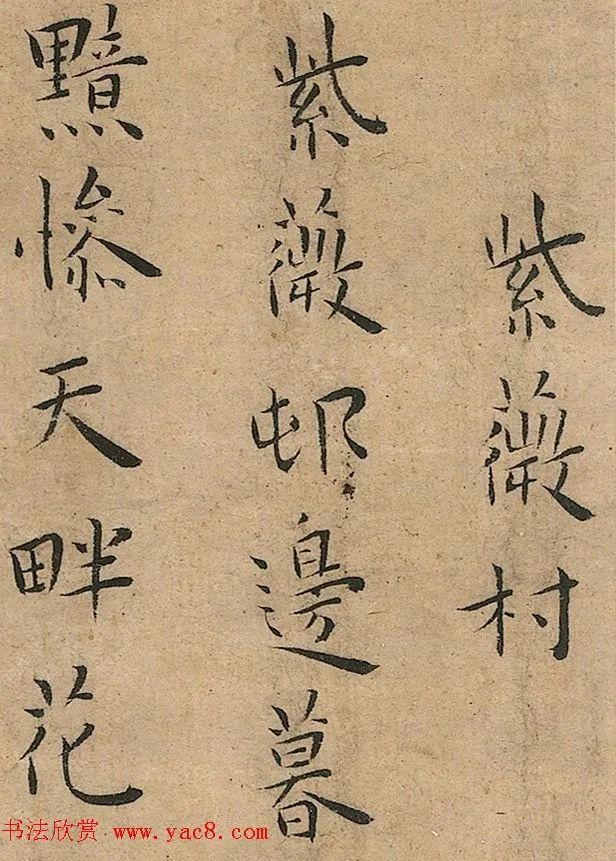 紫薇村
紫薇邨邊暮
黯慘天畔花
书法欣赏 www.yac8.com